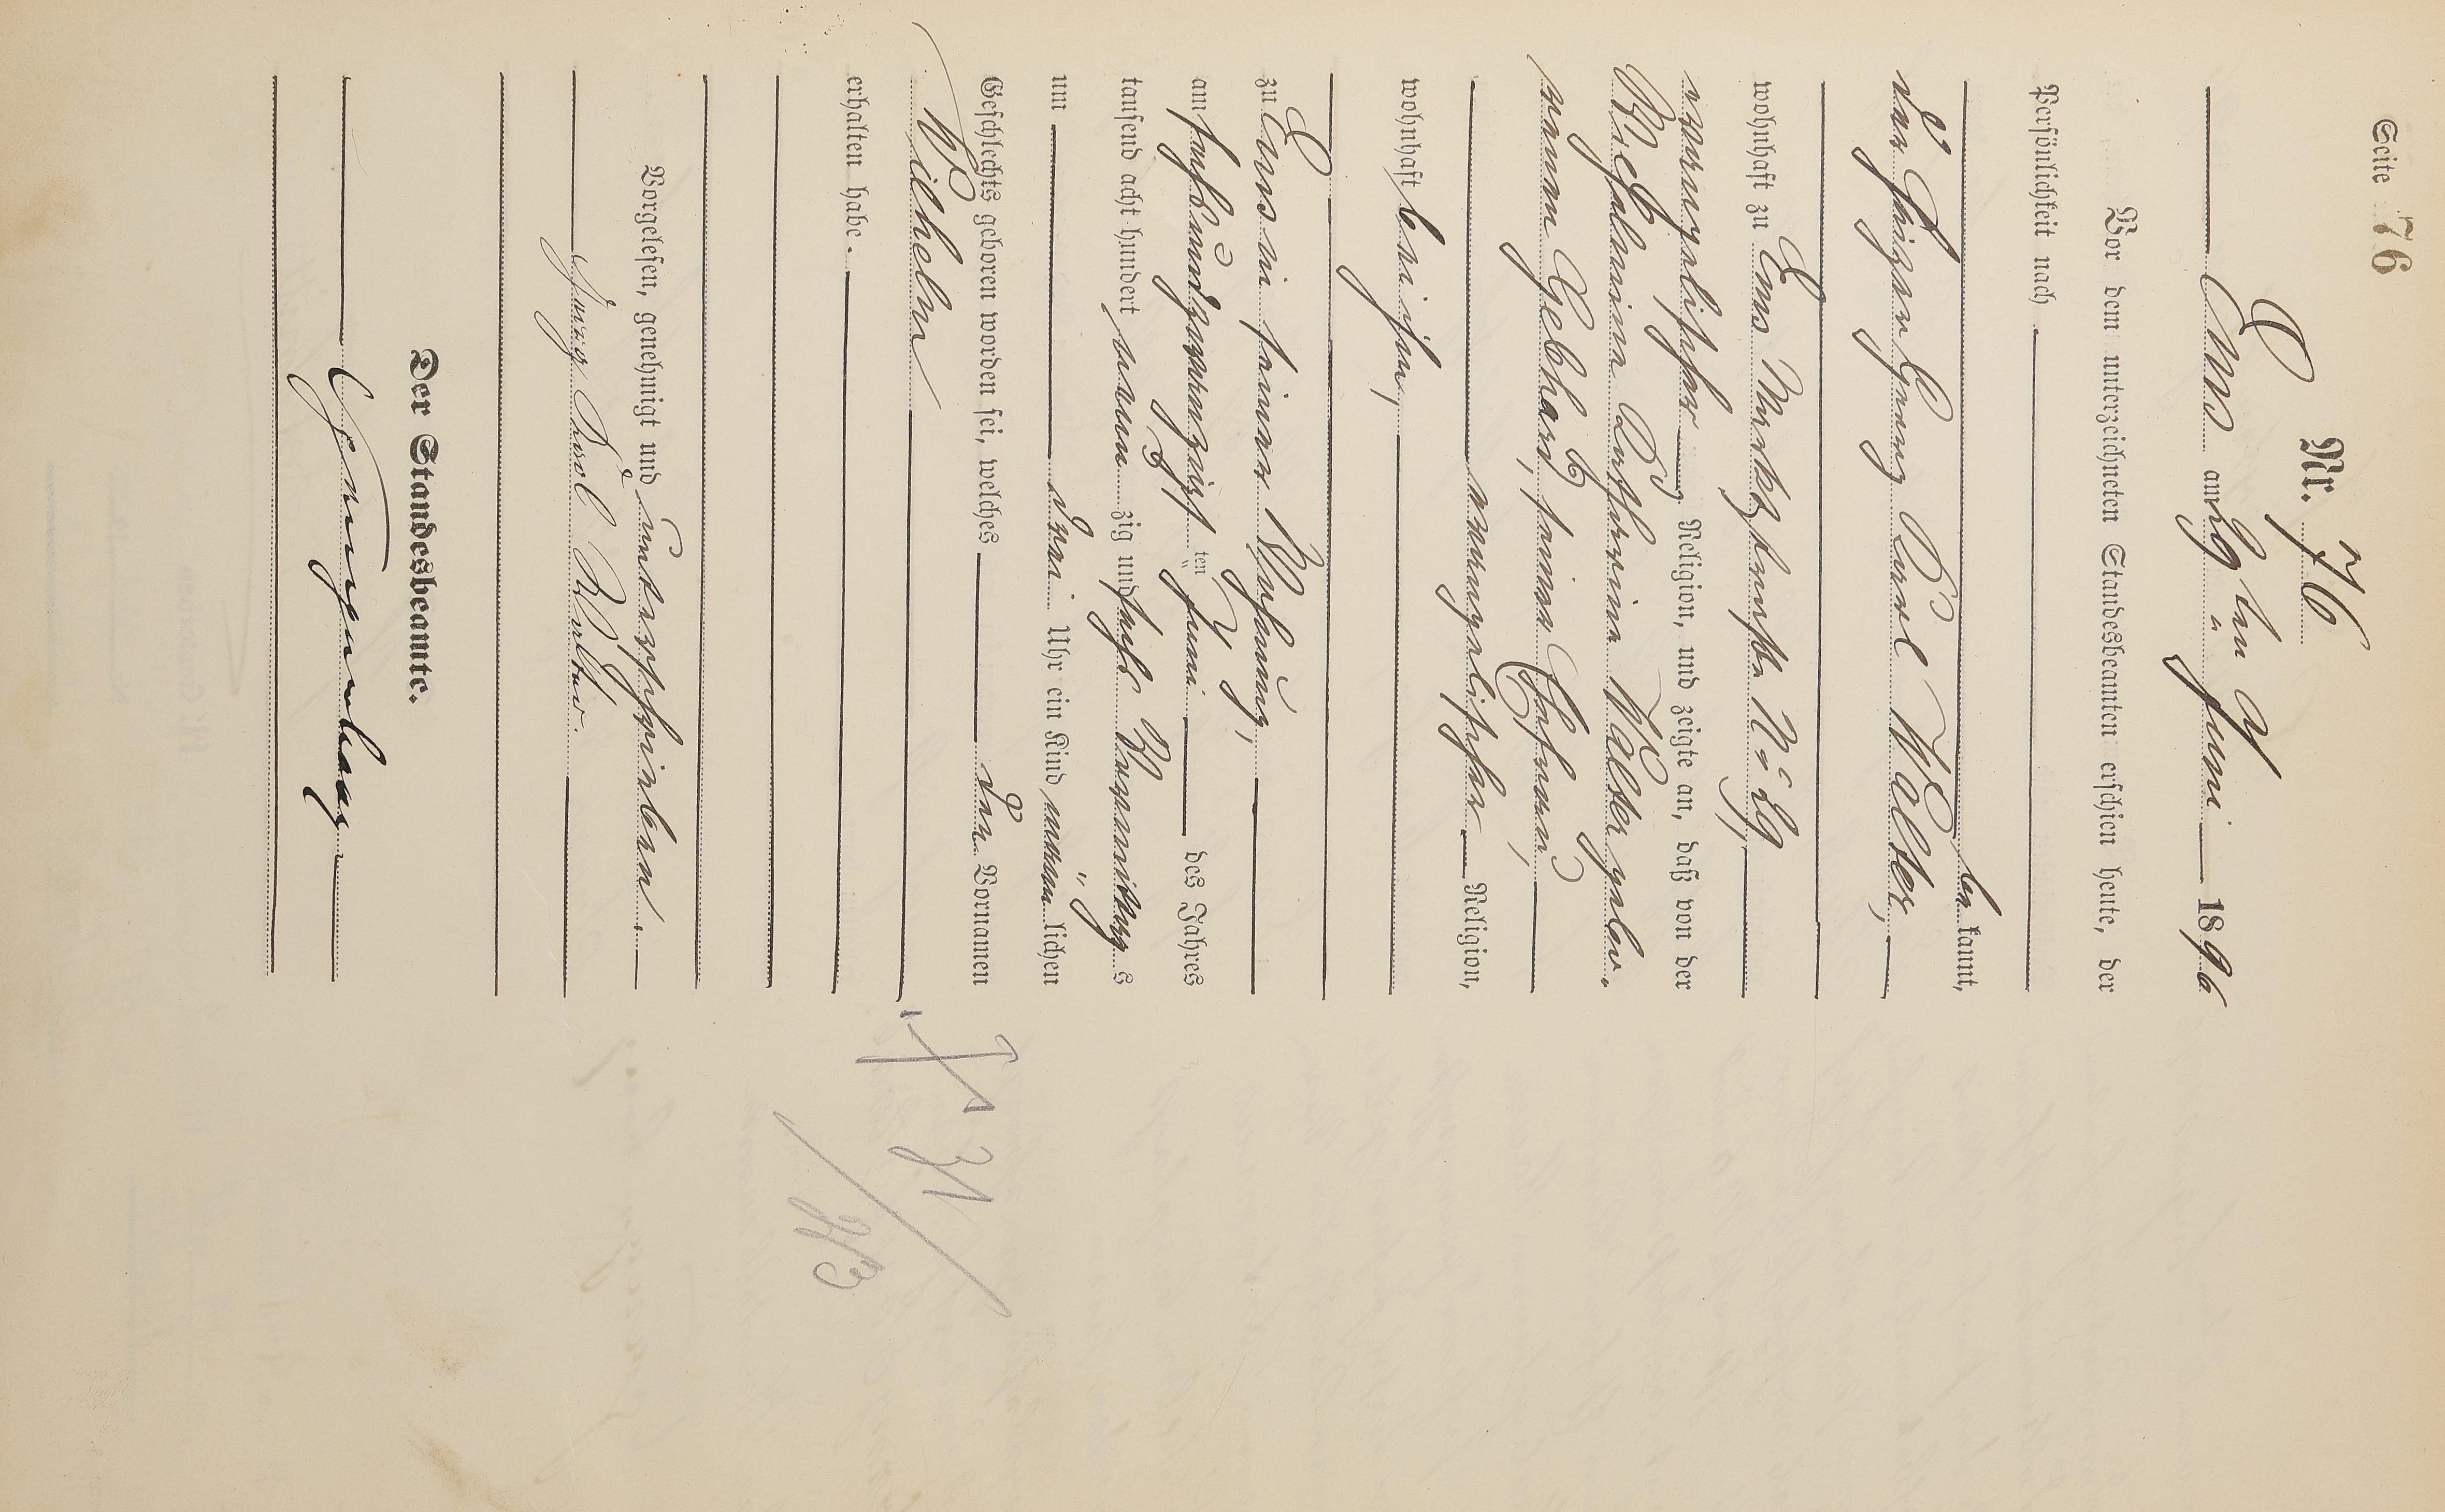 Seite 76
Nr. 76
Ems am 29 ten Juni 1896
Vor dem unterzeichneten Standesbeamten erschien heute, der
Persönlichkeit nach
be kannt,
der Heizer Georg Karl Walter,
wohnhaft zu Ems
evangelischer Religion, und zeigte an, daß von der
Wilhelmine Katharina Walter gebor.
enen Gebhard, seiner Ehefrau,
evangelischer Religion,
wohnhaft bei ihm,
zu Ems in seiner Wohnung,
am sechsundzwanzigsten Juni des Jahres
tausend acht hundert neun zig und sechs Vormittags
um drei Uhr ein Kind männlichen
Geschlechts geboren worden sei, welches den Vornamen
Wilhelm
erhalten habe.
Vorgelesen, genehmigt und unterschrieben.
Georg Karl Walter
Der Standesbeamte.